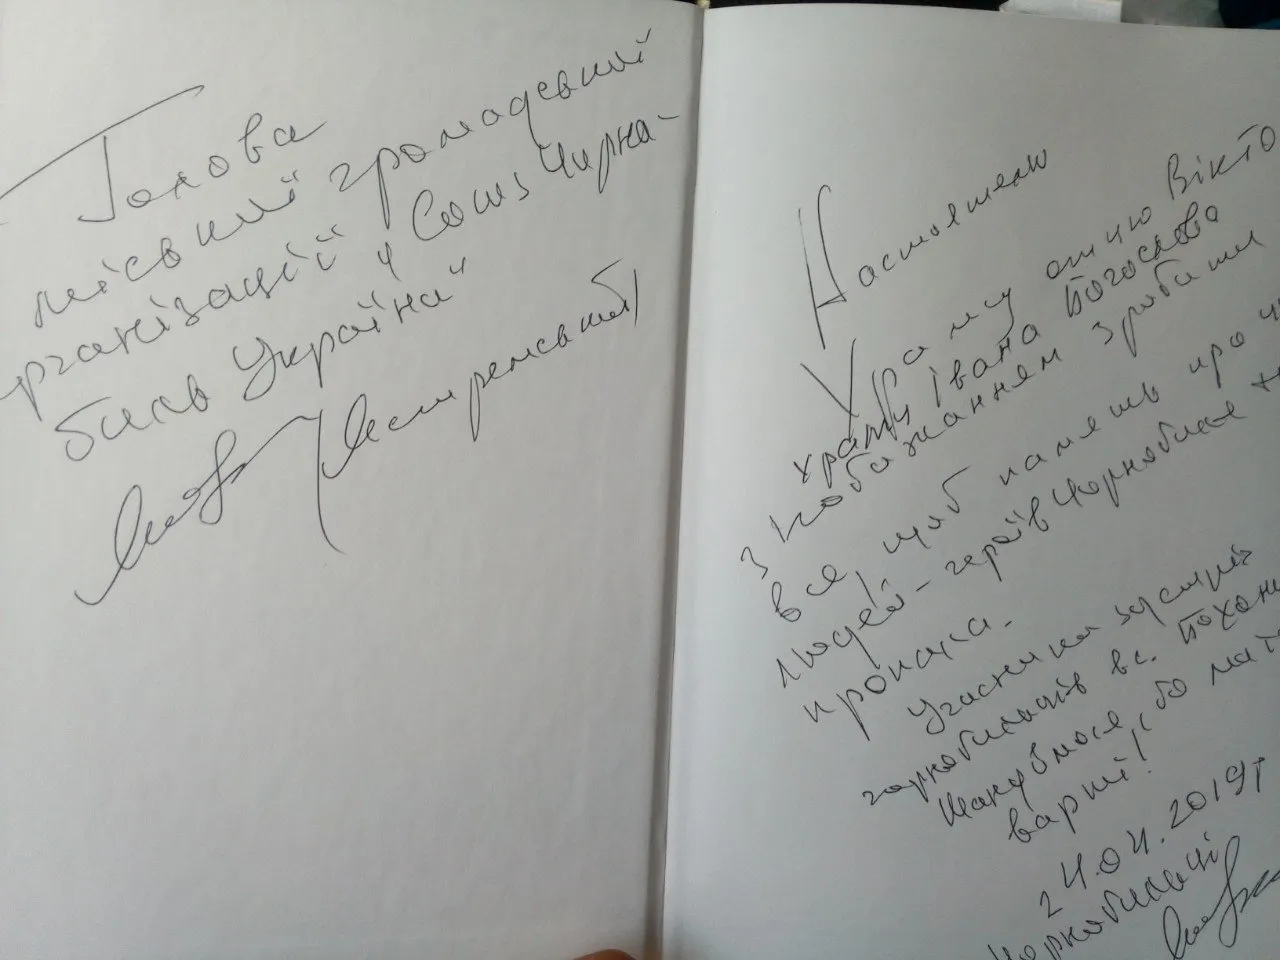 Голова
міської громадської
рганізації „Союз Чорно-
биль України"
Настоятелю
Храму отцю Вікто
храму Івана Богослова
з побажанням зробити
все, щоб память про
людей - героїв Чорнобиля
пройшла.
Учасники зустрічі
чорнобильців вс.
Шануймося, бо ми
варті!
24.04.2019р
Чорнобильці